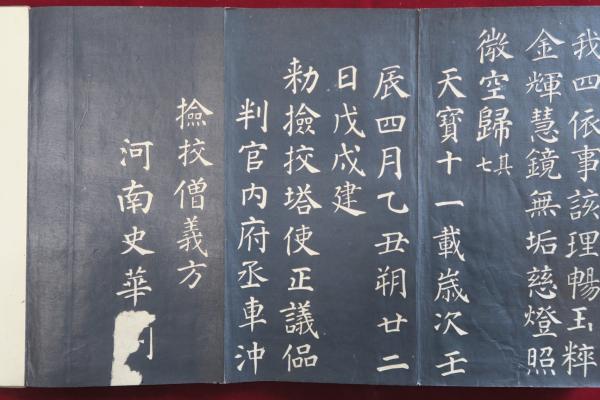 我四依事該理暢玉粹
金輝慧鏡無垢慈燈照
微空歸其七
天寶十一載歲次壬
辰四月乙丑朔廿二
日戊戌建
勑撿挍塔使正議
判官內府丞車沖
撿挍僧義方
河南史華